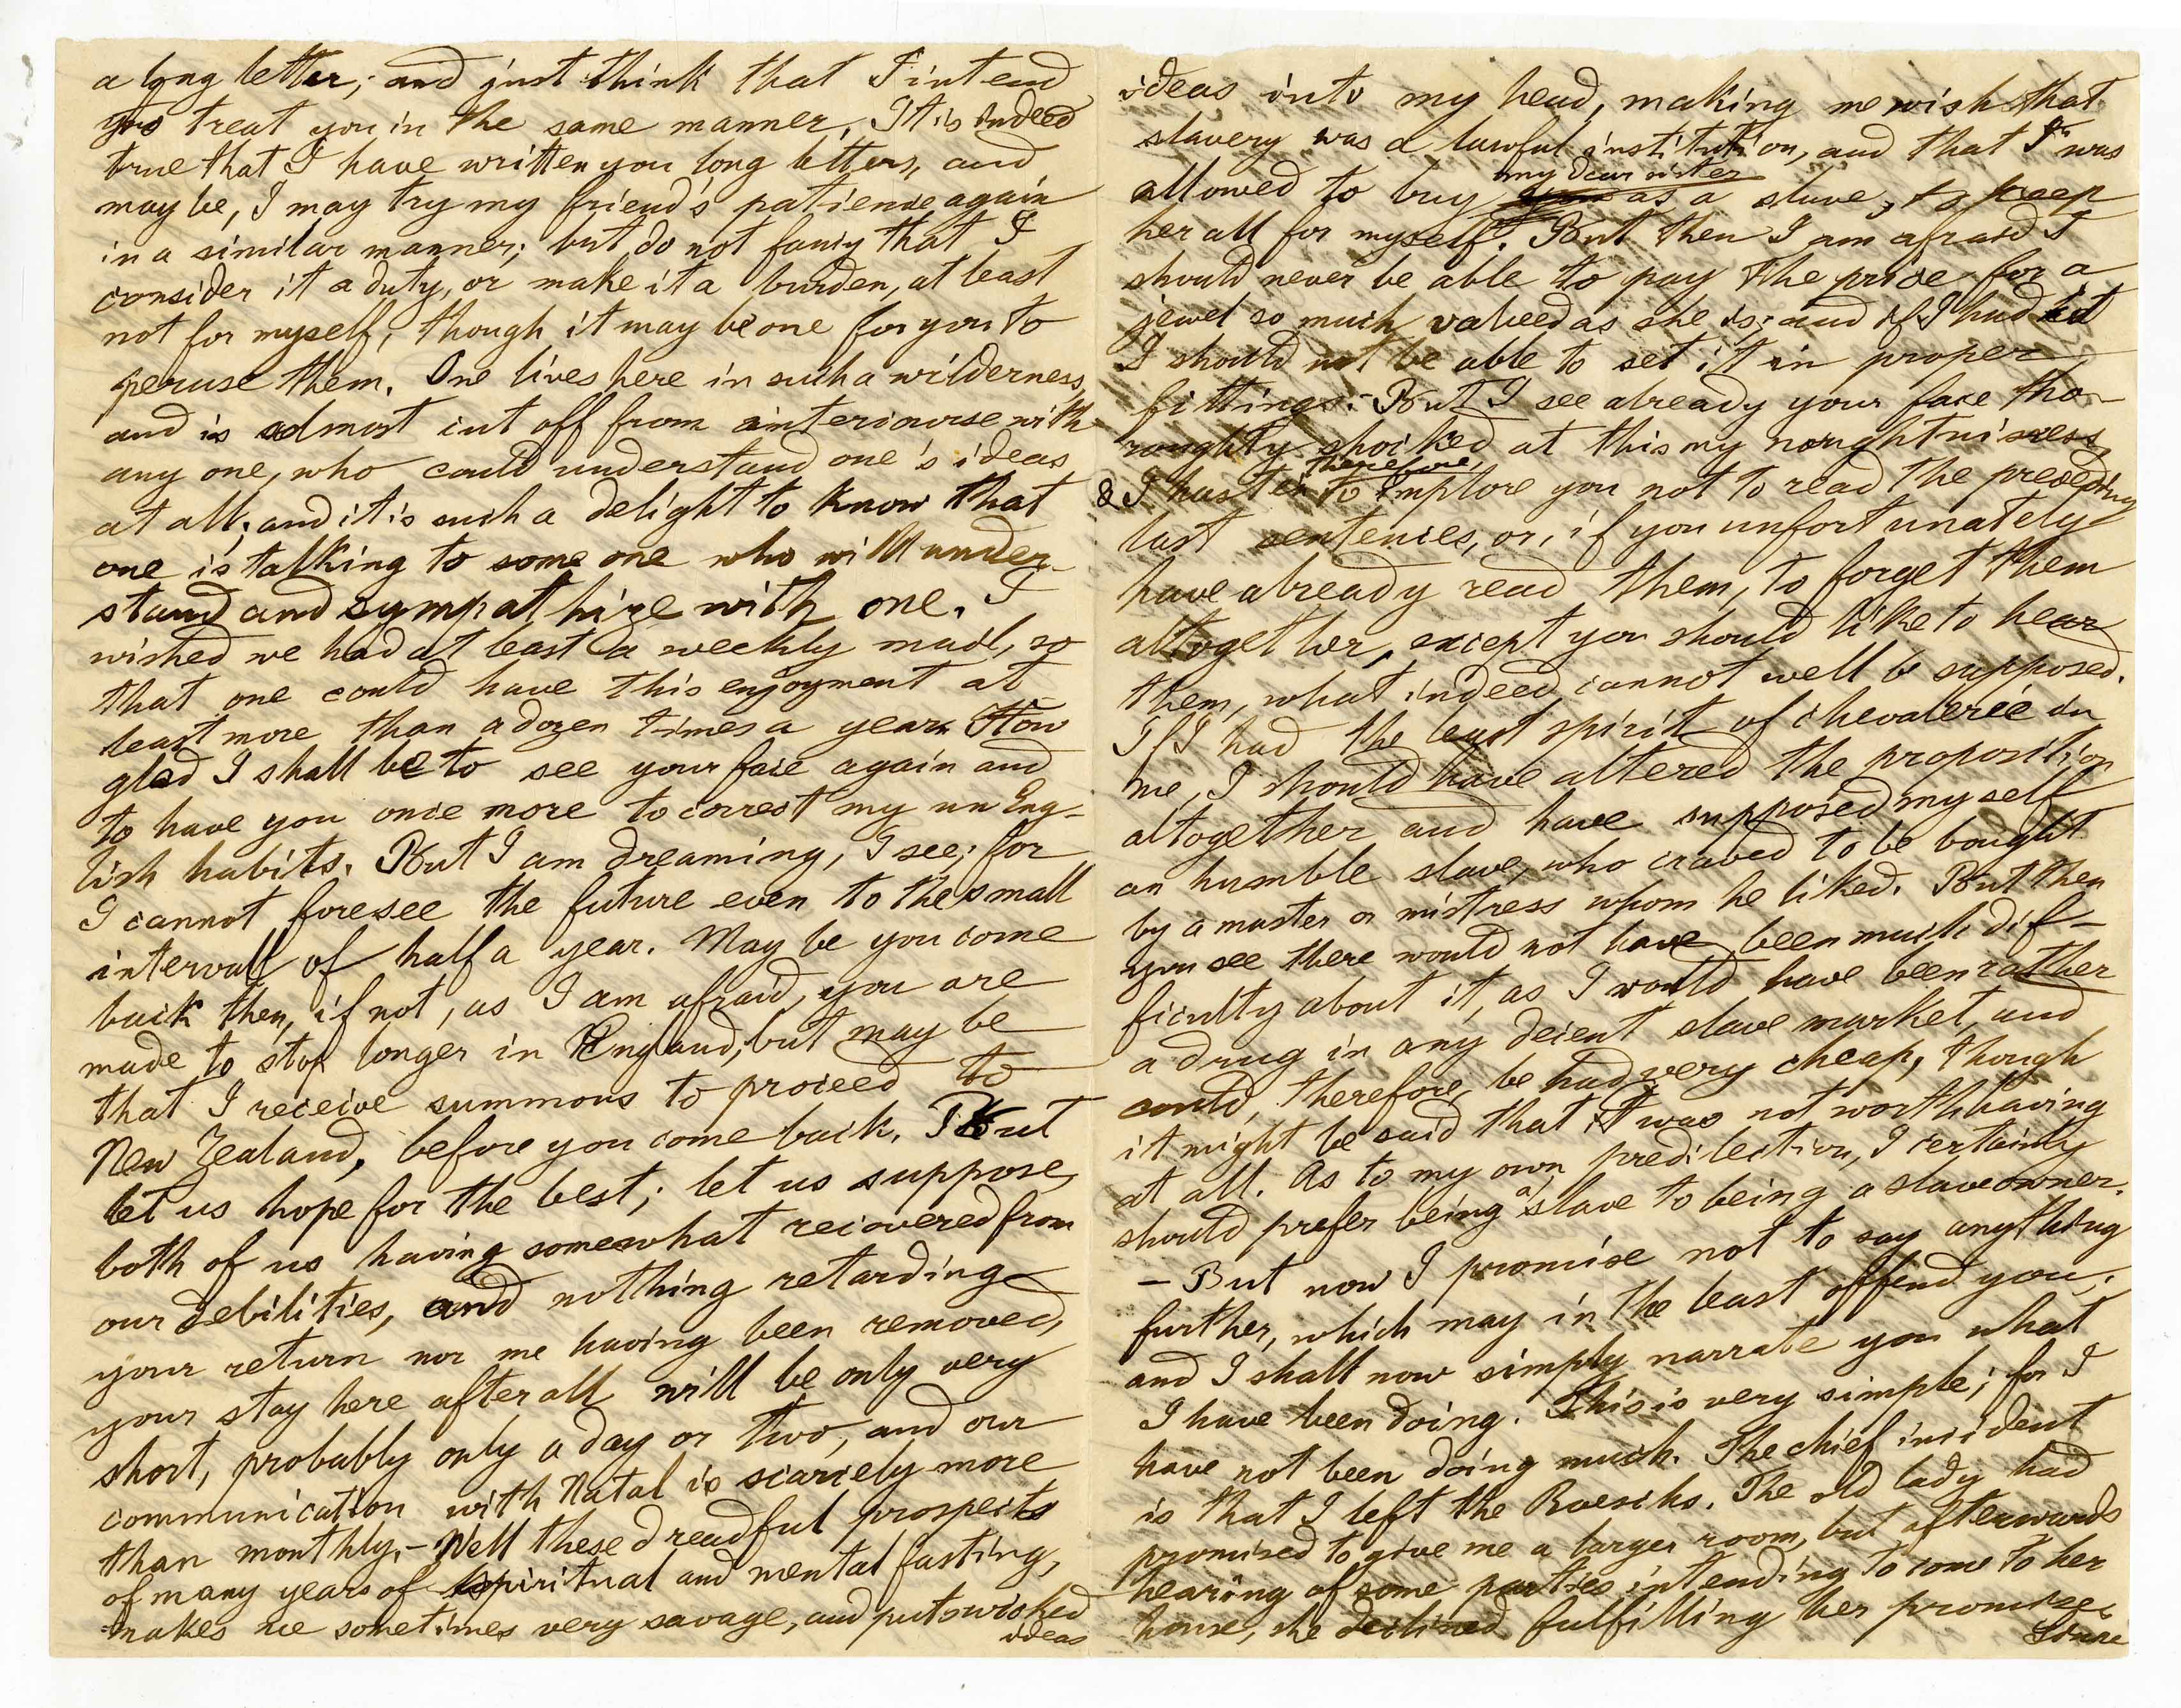 a long letter; and just think that I intend
to treat you in the same manner. It is indeed
true that I have written you long letters, and
may be, I may try my friend's patience again
in a similar manner; but do not fancy that I
consider it a duty, or make it a burden, at least
not for myself, though it may be one for you to
peruse them. One lives here in such a wilderness,
and is almost cut off from intercourse with
any one, who could understand one's ideas
at all; and it is such a delight to know that
one is talking to some one who will under-
stand and sympathize with one. I
wished we had at least a weekly mail, so
that one could have this enjoyment at
least more than a dozen times a year. How
glad I shall be to see your face again and
to have you once more to correct my un Eng-
lish habits. But I am dreaming, I see; for
I cannot foresee the future even to the small
intervall of half a year. May be you come
back then, if not, as I am afraid, you are
made to stop longer in England; but may be
that I receive summons to proceed to
New Zealand, before you come back. But
let us hope for the best; let us suppose,
both of us having somewhat recovered from
our debilities, and nothing retarding
your return nor me having been removed,
your stay here after all will be only very
short, probably only a day or two, and our
communication with Natal is scarcely more
than monthly. - Well these dreadful prospects
of many years of spiritual and mental fasting,
makes me sometimes very savage, and puts wicked
ideas
ideas into my head, making me wish that
slavery was a lawful institution, and that I was
my dear sister
allowed to buy you as a slave, to keep
her all for myself. But then I am afraid I
should never be able to pay the price for a
jewel so much valued as she is; and if I had it
I should not be able to set it in proper
fittings. But I see already your face tho-
roughly shocked at this my naughtiness,
therefore,
& I hasten to implore you not to read the preceding
last sentences, or, if you unfortunately
have already read them, to forget them
altogether, except you should like to hear
them, what indeed cannot well be supposed.
If I had the least spirit of chevalerie in
me, I should have altered the proposition
altogether and have supposed myself
an humble slave, who craved to be bought
by a master or mistress whom he liked. But then
you see there would not have been much dif-
ficulty about it, as I would have been rather
a drug in any decent slave market, and
could, therefore, be had very cheap, though
it might be said that it was not worth having
at all. As to my own predilection, I certainly
should prefer being a slave to being a slaveowner.
- But now I promise not to say anything
further, which may in the least offend you,
and I shall now simply narrate you what
I have been doing. This is very simple; for I
have not been doing much. The chief incident
is that I left the Roesiks. The old lady had
promised to give me a larger room, but afterwards
hearing of some parties intending to come to her
house, she declined fulfilling her promise.
Since